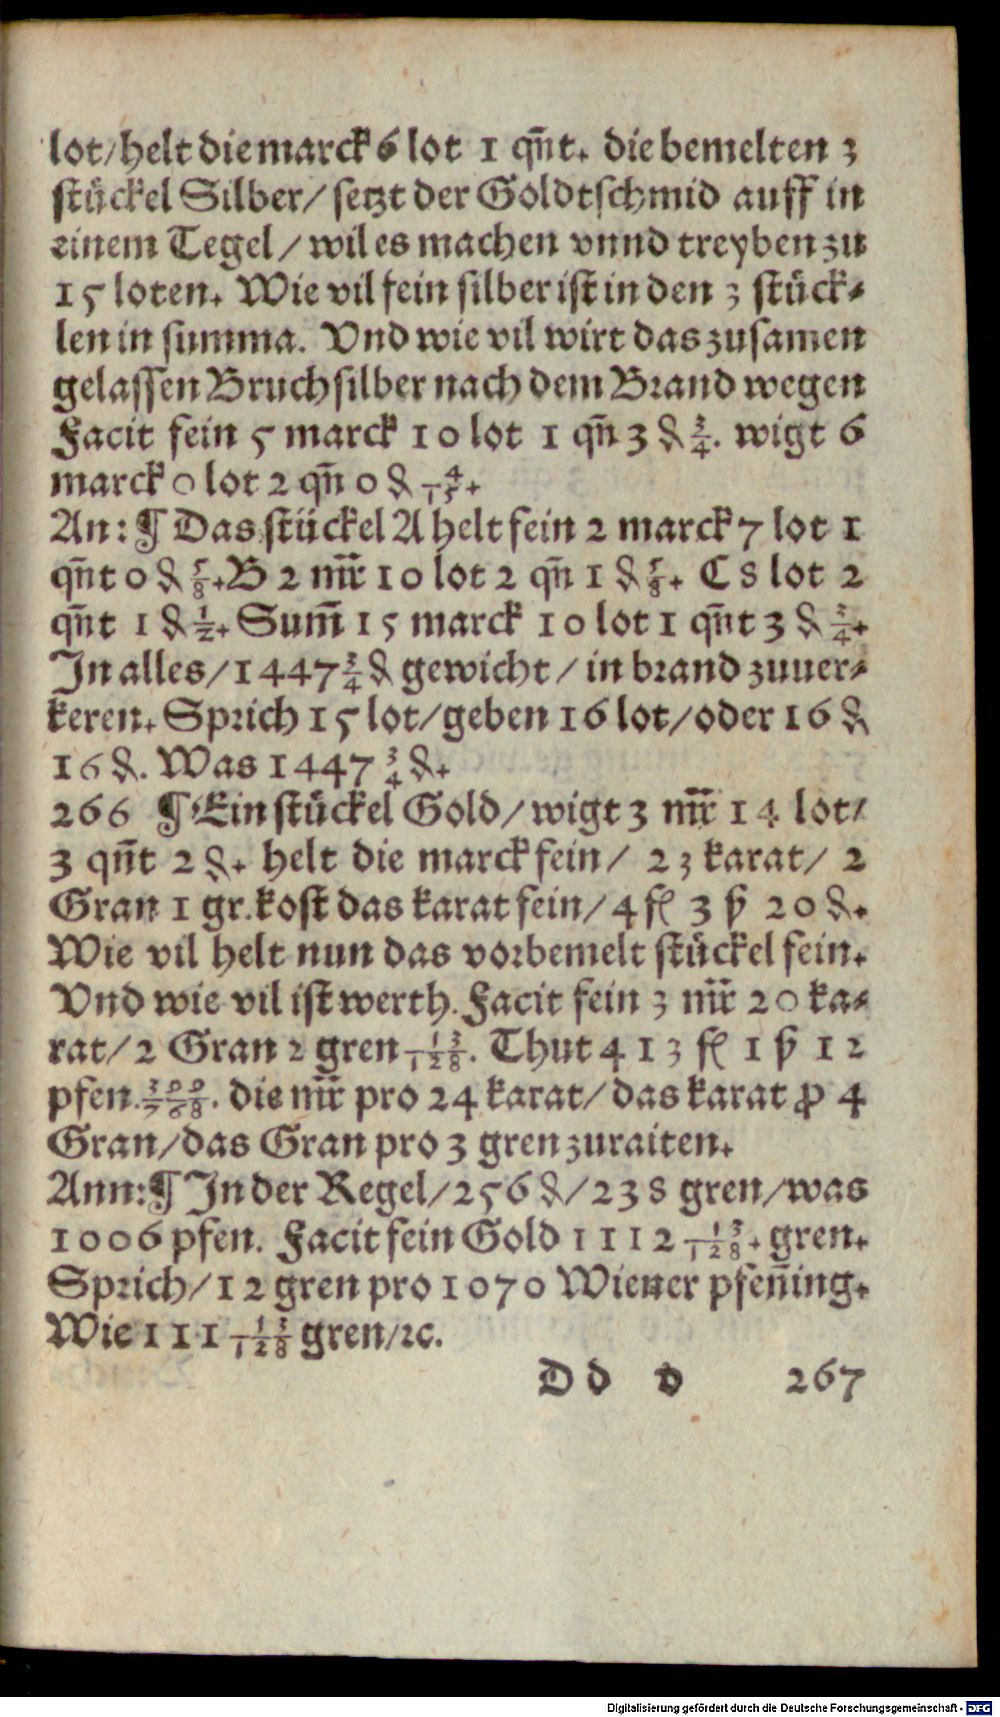 lot/helt die marck 6 lot 1 qñt. die bemelten 3
stückel Silber/ setzt der Goldtschmid auff in
einem Tegel/ wil es machen vnnd treyben zu
15 loten. Wie vil fein silber ist in den 3 stück⸗
len in summa. Vnd wie vil wirt das zusamen
gelassen Bruchsilber nach dem Brand wegen
Facit fein 5 marck 10 lot 1 qñ 3 ₰ 3/4. wigt 6
marck 0 lot 2 qñ 0 ₰ 4/15.
An: ¶ Das stückel A helt fein 2 marck 7 lot 1
qñt 0 ₰ 5/8. B 2 mr̃ 10 lot 2 qñ 1 ₰ 5/8. C 8 lot 2
qñt 1 ₰ 1/2. Sum̃ 15 marck 10 lot 1 qñt 3 ₰ 3/4.
In alles/ 1447 3/4 ₰ gewicht/ in brand zuuer⸗
keren. Sprich 15 lot/geben 16 lot/oder 16 ₰
16 ₰. Was 1447 3/4 ₰.
266 ¶ Ein stückel Gold/ wigt 3 mr̃ 14 lot/
3 qñt 2 ₰. helt die marck fein/ 23 karat/ 2
Gran 1 gr. kost das karat fein/ 4 fl 3 ß 20 ₰.
Wie vil helt nun das vorbemelt stückel fein.
Vnd wie vil ist werth. Facit fein 3 mr̃ 20 ka⸗
rat/ 2 Gran 2 gren 13/128. Thut 413 fl 1 ß 12
pfen. 399/768. die mr̃ pro 24 karat/ das karat ꝓ 4
Gran/das Gran pro 3 gren zuraiten.
Ann: ¶ In der Regel/ 256 ₰/ 238 gren/was
1006 pfen. Facit fein Gold 1112 13/128. gren.
Sprich/ 12 gren pro 1070 Wiener pfen̄ing.
Wie 111 13/128 gren/ ⁊c.
D d v 267
Digitalisierung gefördert durch die Deutsche Forschungsgemeinschaft - DFG